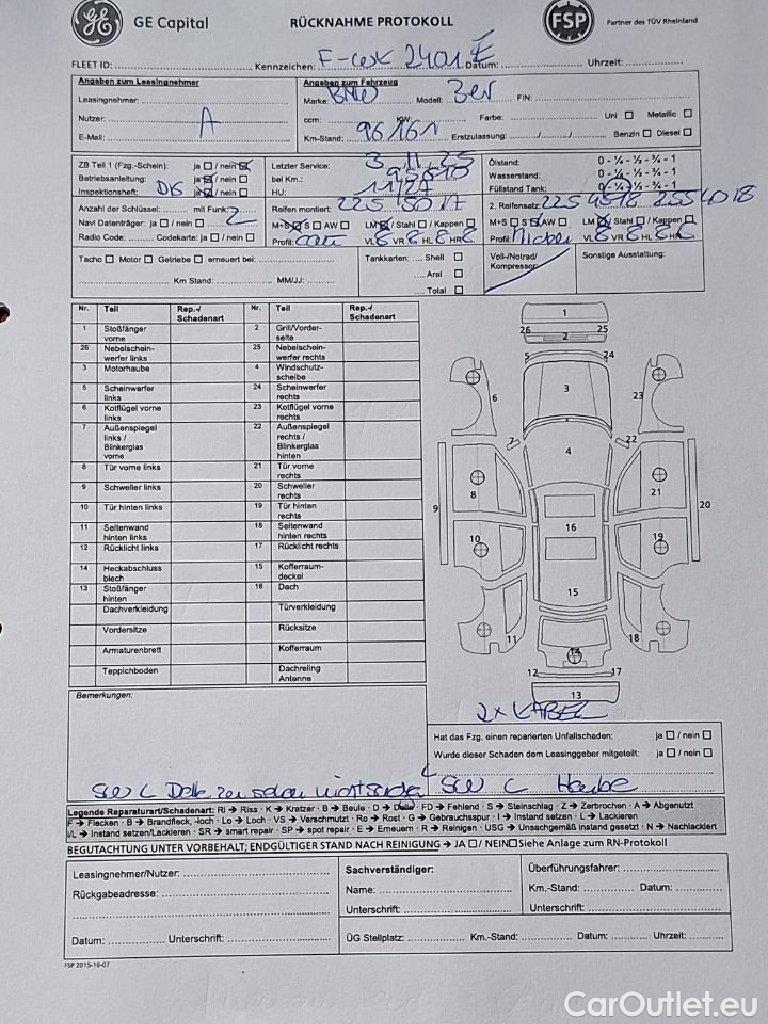 GE Capital RÜCKNAHME PROTOKOLL FSP Partner des TÜV Rheinland
FLEET ID: Kennzeichen: Datum: Uhrzeit:
Angaben zum Leasingnehmer Angaben zum Fahrzeug
Leasingnehmer: Marke: BMW Modell: 3er FIN:
Nutzer: A ccm: KW: Farbe: Uni ☐ Metallic ☐
E-Mail: Km-Stand: 96161 Erstzulassung: Benzin ☐ Diesel ☐
ZB Teil 1 (Fzg.-Schein): ja ☐ / nein ☒ Letzter Service: 3.11.25 Ölstand: 0 - ¼ - ½ - ¾ - 1
Betriebsanleitung: ja ☒ / nein ☐ bei Km.: Wasserstand: 0 - ¼ - ½ - ¾ - 1
Inspektionsheft: ja ☒ / nein ☐ HU: 11/27 Füllstand Tank: 0 - ¼ - ½ - ¾ - 1
Anzahl der Schlüssel: mit Funk: 2 Reifen montiert: 225 50 17 2. Reifensatz: 225 4518 255 4018
Navi Datenträger: ja ☐ / nein ☐ M+S ☒ S ☐ AW ☐ LM ☒ / Stahl ☐ / Kappen ☐ M+S ☐ S ☒ AW ☐ LM ☒ / Stahl ☐ / Kappen ☐
Radio Code: Codekarte: ja ☐ / nein ☐ Profil: VL 8 VR 8 HL 8 HR 8 Profil: VL 8 VR 8 HL 8 HR 6
Tacho ☐ Motor ☐ Getriebe ☐ erneuert bei: Tankkarten: Shell ☐ Voll-/Notrad/ Sonstige Ausstattung:
Aral ☐ Kompressor:
Km Stand: MM/JJ: Total ☐
Nr. Teil Rep.-/ Schadenart Nr. Teil Rep.-/ Schadenart
1 Stoßfänger vorne 2 Grill/Vorderseite
26 Nebelscheinwerfer links 25 Nebelscheinwerfer rechts
3 Motorhaube 4 Windschutzscheibe
5 Scheinwerfer links 24 Scheinwerfer rechts
6 Kotflügel vorne links 23 Kotflügel vorne rechts
7 Außenspiegel links / Blinkerglas vorne 22 Außenspiegel rechts / Blinkerglas hinten
8 Tür vorne links 21 Tür vorne rechts
9 Schweller links 20 Schweller rechts
10 Tür hinten links 19 Tür hinten rechts
11 Seitenwand hinten links 18 Seitenwand hinten rechts
12 Rücklicht links 17 Rücklicht rechts
14 Heckabschluss blech 15 Kofferraumdeckel
13 Stoßfänger hinten 16 Dach
Dachverkleidung Türverkleidung
Vordersitze Rücksitze
Armaturenbrett Kofferraum
Teppichboden Dachreling Antenne
1
26 25
2
5 24
6 3 23
7 22
4
8 21
9 20
10 16 19
15
11 18
14
12 17
13
Bemerkungen:
2x KABEL
Hat das Fzg. einen reparierten Unfallschaden: ja ☐ / nein ☐
Wurde dieser Schaden dem Leasinggeber mitgeteilt: ja ☐ / nein ☐
Haube
Legende Reparaturart/Schadenart: RI → Riss · K → Kratzer · B → Beule · D → Delle · FD → Fehlend · S → Steinschlag · Z → Zerbrochen · A → Abgenutzt
F → Flecken · B → Brandfleck, -loch · Lo → Loch · VS → Verschmutzt · Ro → Rost · G → Gebrauchsspur · I → Instand setzen · L → Lackieren
I/L → Instand setzen/Lackieren · SR → smart repair · SP → spot repair · E → Erneuern · R → Reinigen · USG → Unsachgemäß instand gesetzt · N → Nachlackiert
BEGUTACHTUNG UNTER VORBEHALT; ENDGÜLTIGER STAND NACH REINIGUNG → JA ☐ / NEIN ☐ Siehe Anlage zum RN-Protokoll
Leasingnehmer/Nutzer: Sachverständiger: Überführungsfahrer:
Rückgabeadresse: Name: Km.-Stand: Datum:
Unterschrift: Unterschrift:
Datum: Unterschrift: ÜG Stellplatz: Km.-Stand: Datum: Uhrzeit:
FSP 2015-10-07
CarOutlet.eu